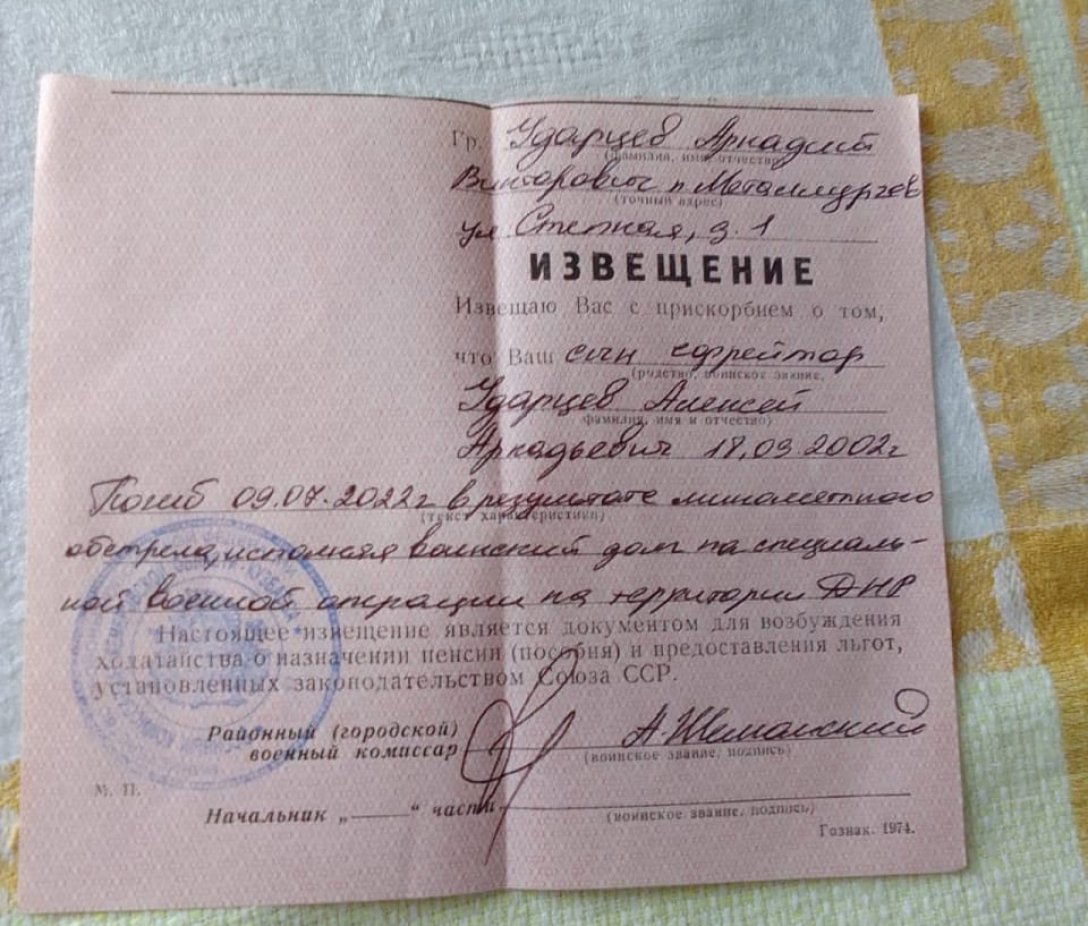 Гр. Ударцев Аркадий
(фамилия, имя, отчество)
Викторович п. Металлургов
(точный адрес)
ул. Степная, д. 1
ИЗВЕЩЕНИЕ
Извещаю Вас с прискорбием о том,
что Ваш сын ефрейтор
(родство, воинское звание,
Ударцев Алексей
фамилия, имя и отчество)
Аркадьевич 18.09.2002г
Погиб 09.07.2022г в результате минометного
(текст характеристики)
обстрела, исполняя воинский долг на специаль-
ной военной операции на территории ДНР
Настоящее извещение является документом для возбуждения
ходатайства о назначении пенсии (пособия) и предоставления льгот,
установленных законодательством Союза ССР.
Районный (городской)
военный комиссар
(воинское звание, подпись)
М. П.
Начальник „——“ части
(воинское звание, подпись)
Гознак. 1974.